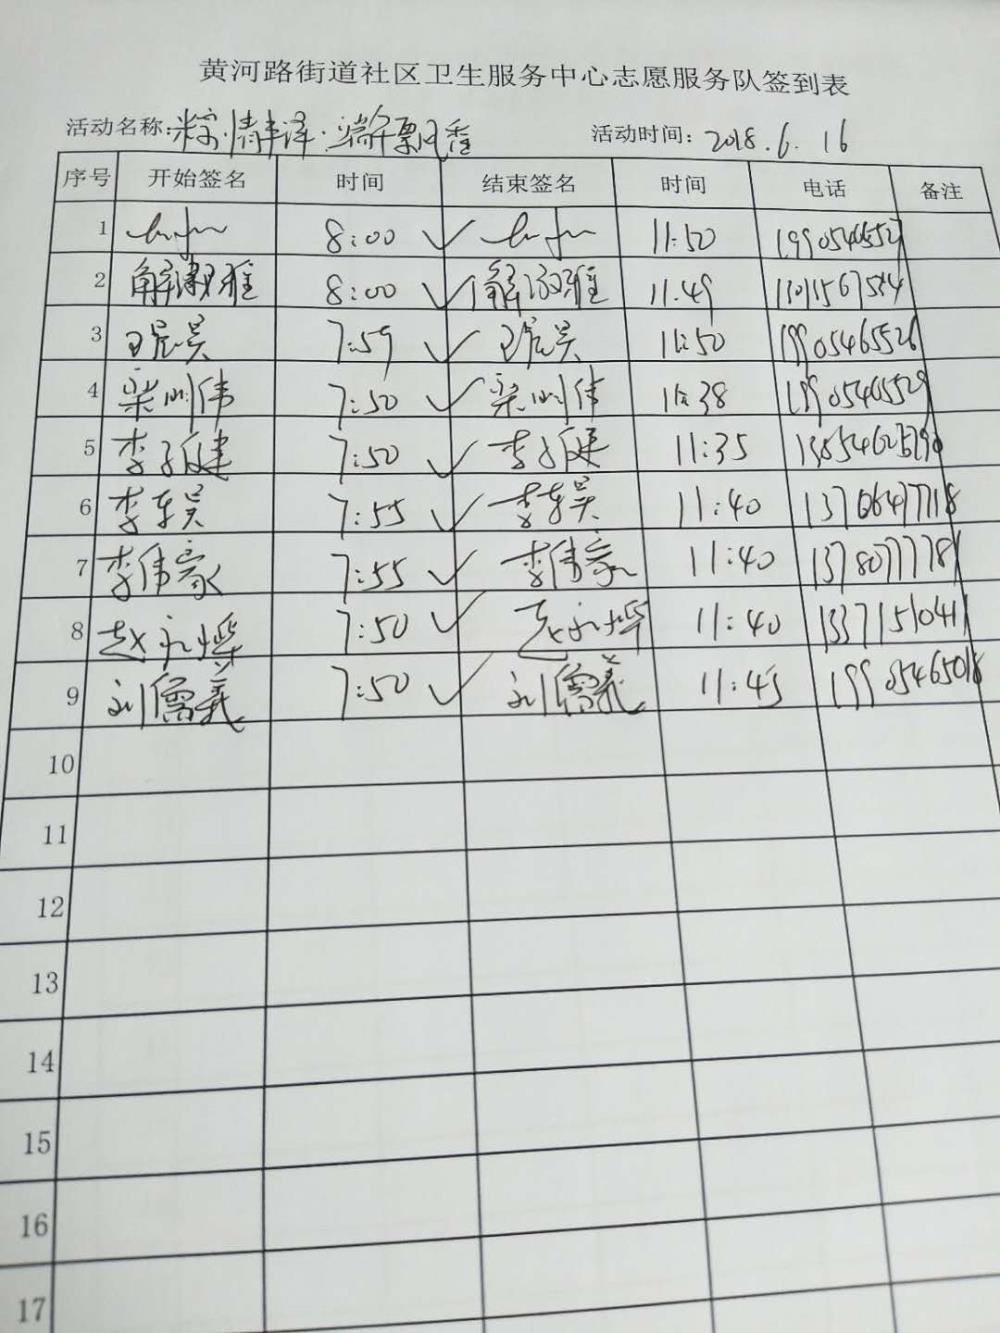 黄河路街道社区卫生服务中心志愿服务队签到表
活动名称：粽情丰泽·端午飘香 活动时间：2018.6.16
序号 开始签名 时间 结束签名 时间 电话 备注
1 8:00 ✓ 11:50
2 解淑雅 8:00 ✓ 解淑雅 11.49
3 王昆昊 7:59 ✓ 王昆昊 11:50 19905465526
4 梁训伟 7:50 ✓ 梁训伟 11:38 19905465529
5 李子健 7:50 ✓ 李子健 11:35
6 李东昊 7:55 ✓ 李东昊 11:40 13706477718
7 李伟家 7:55 ✓ 李伟家 11:40
8 赵永烨 7:50 ✓ 赵永烨 11:40 13371510411
9 刘儒義 7:50 ✓ 刘儒義 11:45 19905465018
10
11
12
13
14
15
16
17